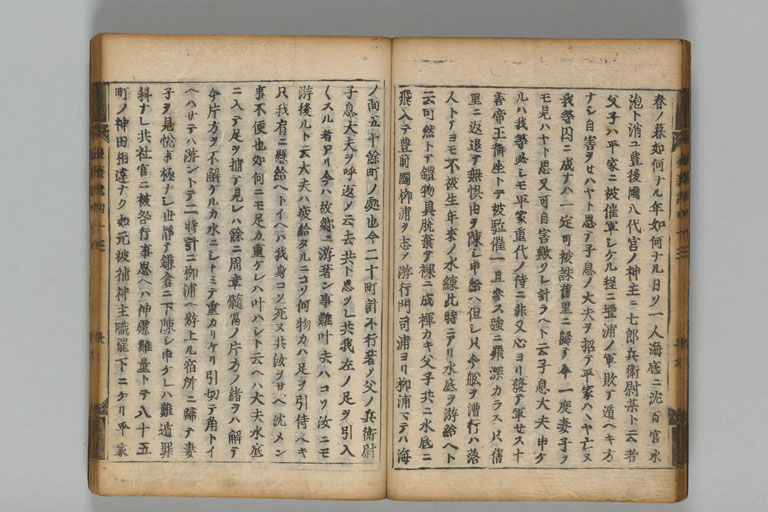 春ノ暮如何ナル年如何ナル日ソ一人海底ニ沈百官水
泡ト消ユ豊後國八代宮ノ神主ニ七郎兵衛尉某ト云者
父子ハ平家ニ被催軍シケル程ニ壇浦ノ軍敗テ遁ヘキ方
ナシ自害ヲせハヤト思テ子息ノ大夫ヲ招テ平家ハハヤ亡ヌ
我等囚ニ成ナハ一定可被誅舊里ニ歸テ今一度妻子ヲ
モ見ハヤト思又可自害歟リシ計ラヘト云子息大夫申ケ
ルハ我等必シモ平家重代ノ侍ニ非又心ヨリ發テ軍せス十
善帝王御坐トテ被駈催一旦參ス強ニ罪深カラス只舊
里ニ返退テ無惧由ヲ陳シ申給ヘ但シ只今舩ヲ漕行ハ落
人トテヨモ不被生年來ノ水練此時ニアリ水底ヲ游給ヘト
云可然トテ鎧物具脱棄テ裸ニ成褌カキ父子共ニ水底ニ
飛入テ豊前國柳浦ヲ志テ游行門司浦ヨリ柳浦マテハ海
ノ面五十餘町ノ処也今二十町計不行著ソ父ノ兵衛尉
子息大夫ヲ呼返ノ云去共ト思ツレ共我左ノ足ヲ引入
ントスル者アリ今ハ故郷ニ游著ン事難叶夫ハコソ汝ニモ
游後ルト云大夫ハ疲給タルニコソ何物カハ足ヲ引侍ヘキ
只我肩ニ懸給ヘトイヘハ我身コソ死ヌ共汝ヲサヘ沈メン
事不便也如何ニモ足カ重ケレハ叶ハシト云ヘハ大夫水底
ニ入テ足ヲ捕テ見レハ餘ニ周章髄當ノ片方ノ緒ヲハ解テ
今片方ヲ不解ケルカ水ニシトミテ重カリケリ引切テ角トイ
ヘハサテハ游ントテ一時計ニ柳浦ヘ游上ル宿所ニ歸テ妻
子ヲ見悦事極ナシ世靜テ鎌倉ニ下陳シ申ケレハ難遁罪
科ナレ共社官ニ被咎行事思ヘハ神慮難量トテ八十五
町ノ神田相違ナク如元被補神主職罷下ニケリ平家